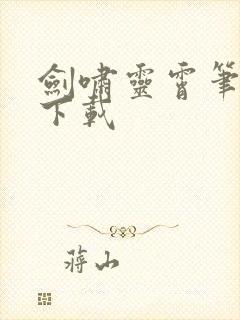 劍嘯靈霄筆
下載
蔣山